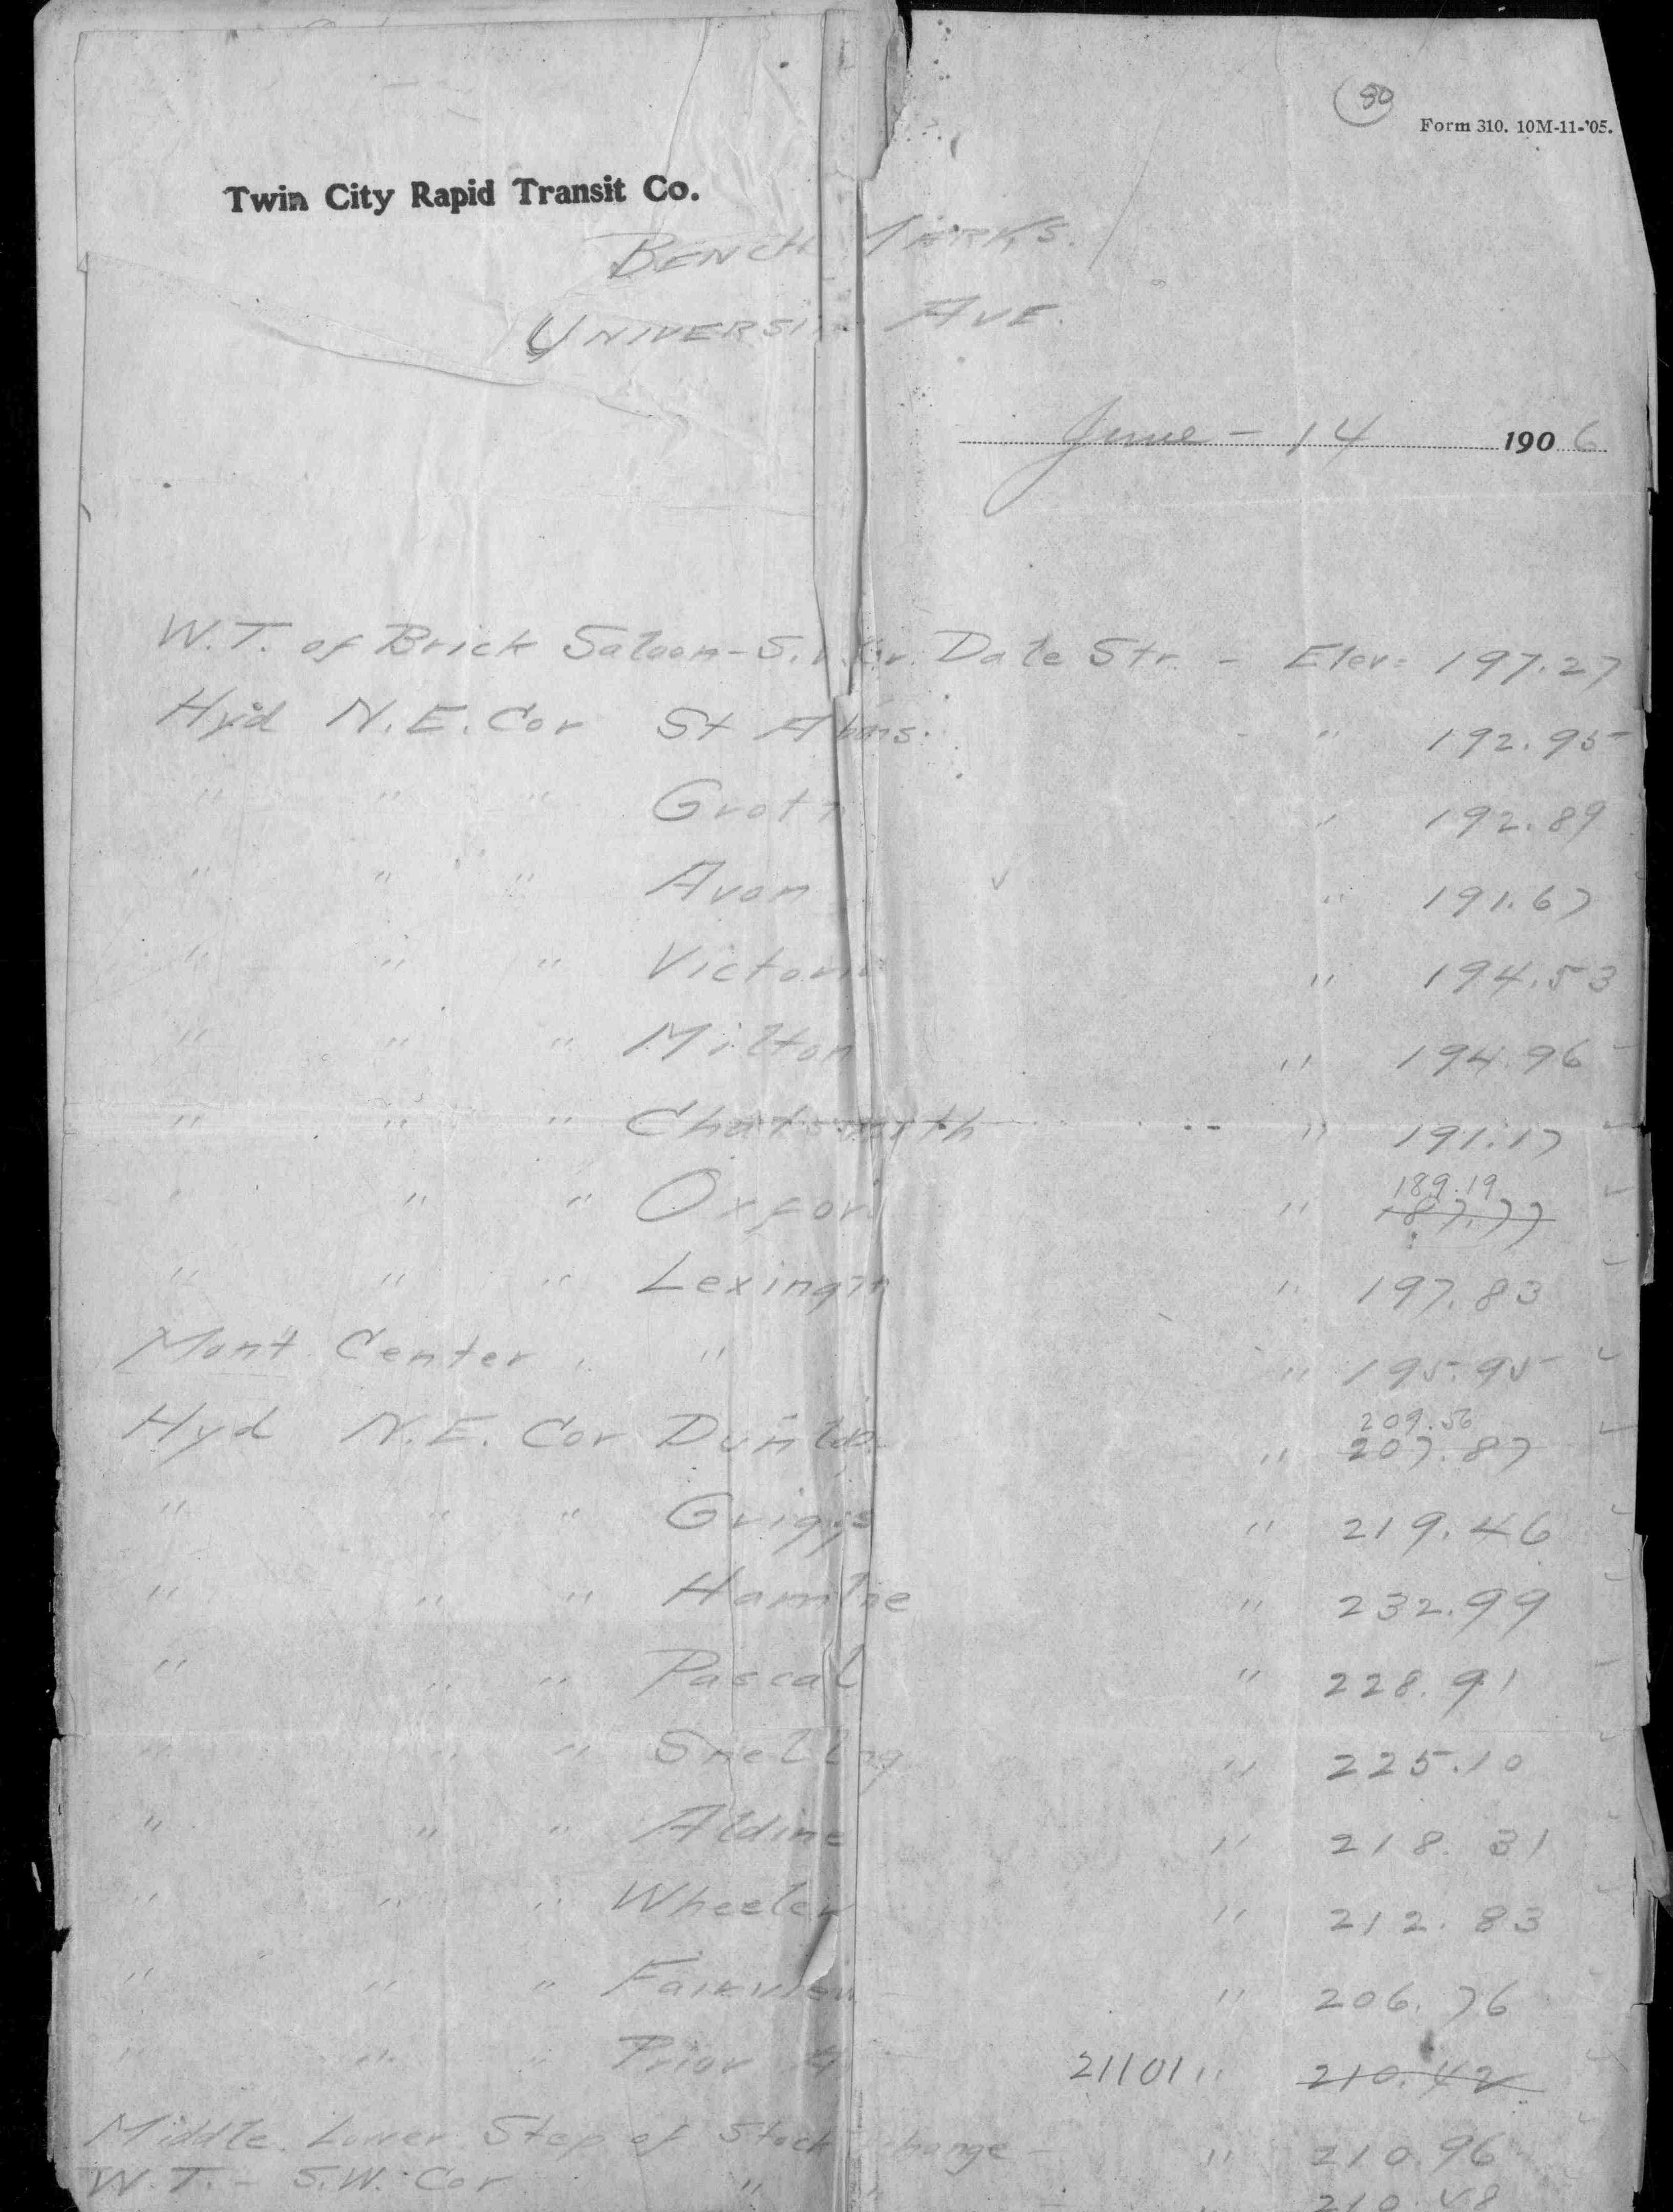 80
Form 310. 10M-11-'05.
Twin City Rapid Transit Co.
BENCH MARKS.
UNIVERSITY AVE.
June - 14 1906
W.T. of Brick Saloon - S. Cor. Dale Str. - Elev = 197.27
Hyd N.E. Cor St Albans. " 192.95
" " " Grotto " 192.89
" " " Avon " 191.67
" " " Victoria " 194.53
" " " Milton " 194.96
" " " Chatsworth " 191.17
189.19
" " " Oxford " 187.77
" " " Lexingtn " 197.83
Mont Center " " 195.95
209.56
Hyd N.E. Cor Dunlap " 207.87
" " " Griggs " 219.46
" " " Hamline " 232.99
" " " Pascal " 228.91
" " " Snelling " 225.10
" " " Aldine " 218.31
" " " Wheeler " 212.83
" " " Fairview " 206.76
" " " Prior 21101 " 210.42
Middle Lower Step of Stock change - " 210.96
W.T. - S.W. Cor " " " 210.48